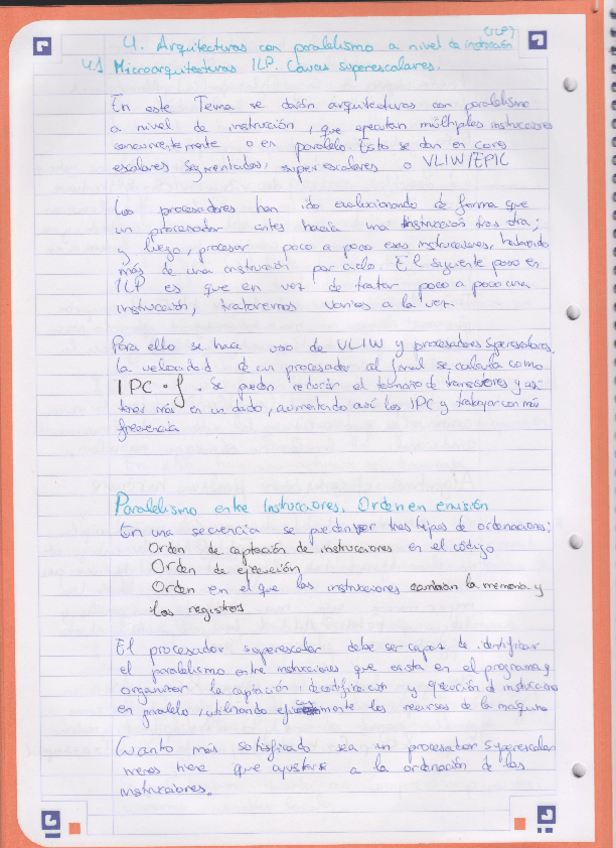 (ILP)
4. Arquitecturas con paralelismo a nivel de instrucción
4.1 Microarquitecturas ILP. Cauces superescalares.
En este Tema se darán arquitecturas con paralelismo
a nivel de instrucción, que ejecutan múltiples instrucciones
concurrentemente o en paralelo. Esto se dan en cores
escalares segmentados, superescalares o VLIW/EPIC
Los procesadores han ido evolucionando de forma que
un procesador antes hacía una instrucción tras otra;
y luego, procesar poco a poco esas instrucciones, habiendo
más de una instrucción por ciclo. El siguiente paso en
ILP es que en vez de tratar poco a poco una
instrucción, trataremos varias a la vez.
Para ello se hace uso de VLIW y procesadores superescalares.
la velocidad de un procesador al final se calcula como
IPC · f. Se pueden reducir el tamaño de transistores y así
tener más en un dado, aumentando así los IPC y trabajar con más
frecuencia
Paralelismo entre Instrucciones. Orden en emisión
En una secuencia se pueden ser tres tipos de ordenaciones:
Orden de captación de instrucciones en el código
Orden de ejecución
Orden en el que las instrucciones cambian la memoria y
los registros
El procesador superescalar debe ser capaz de identificar
el paralelismo entre instrucciones que exista en el programa y
organizar la captación, decodificación y ejecución de instrucciones
en paralelo, utilizando los recursos de la máquina
Cuanto más sofisticado sea un procesador superescalar
menos tiene que ajustarse a la ordenación de las
instrucciones.